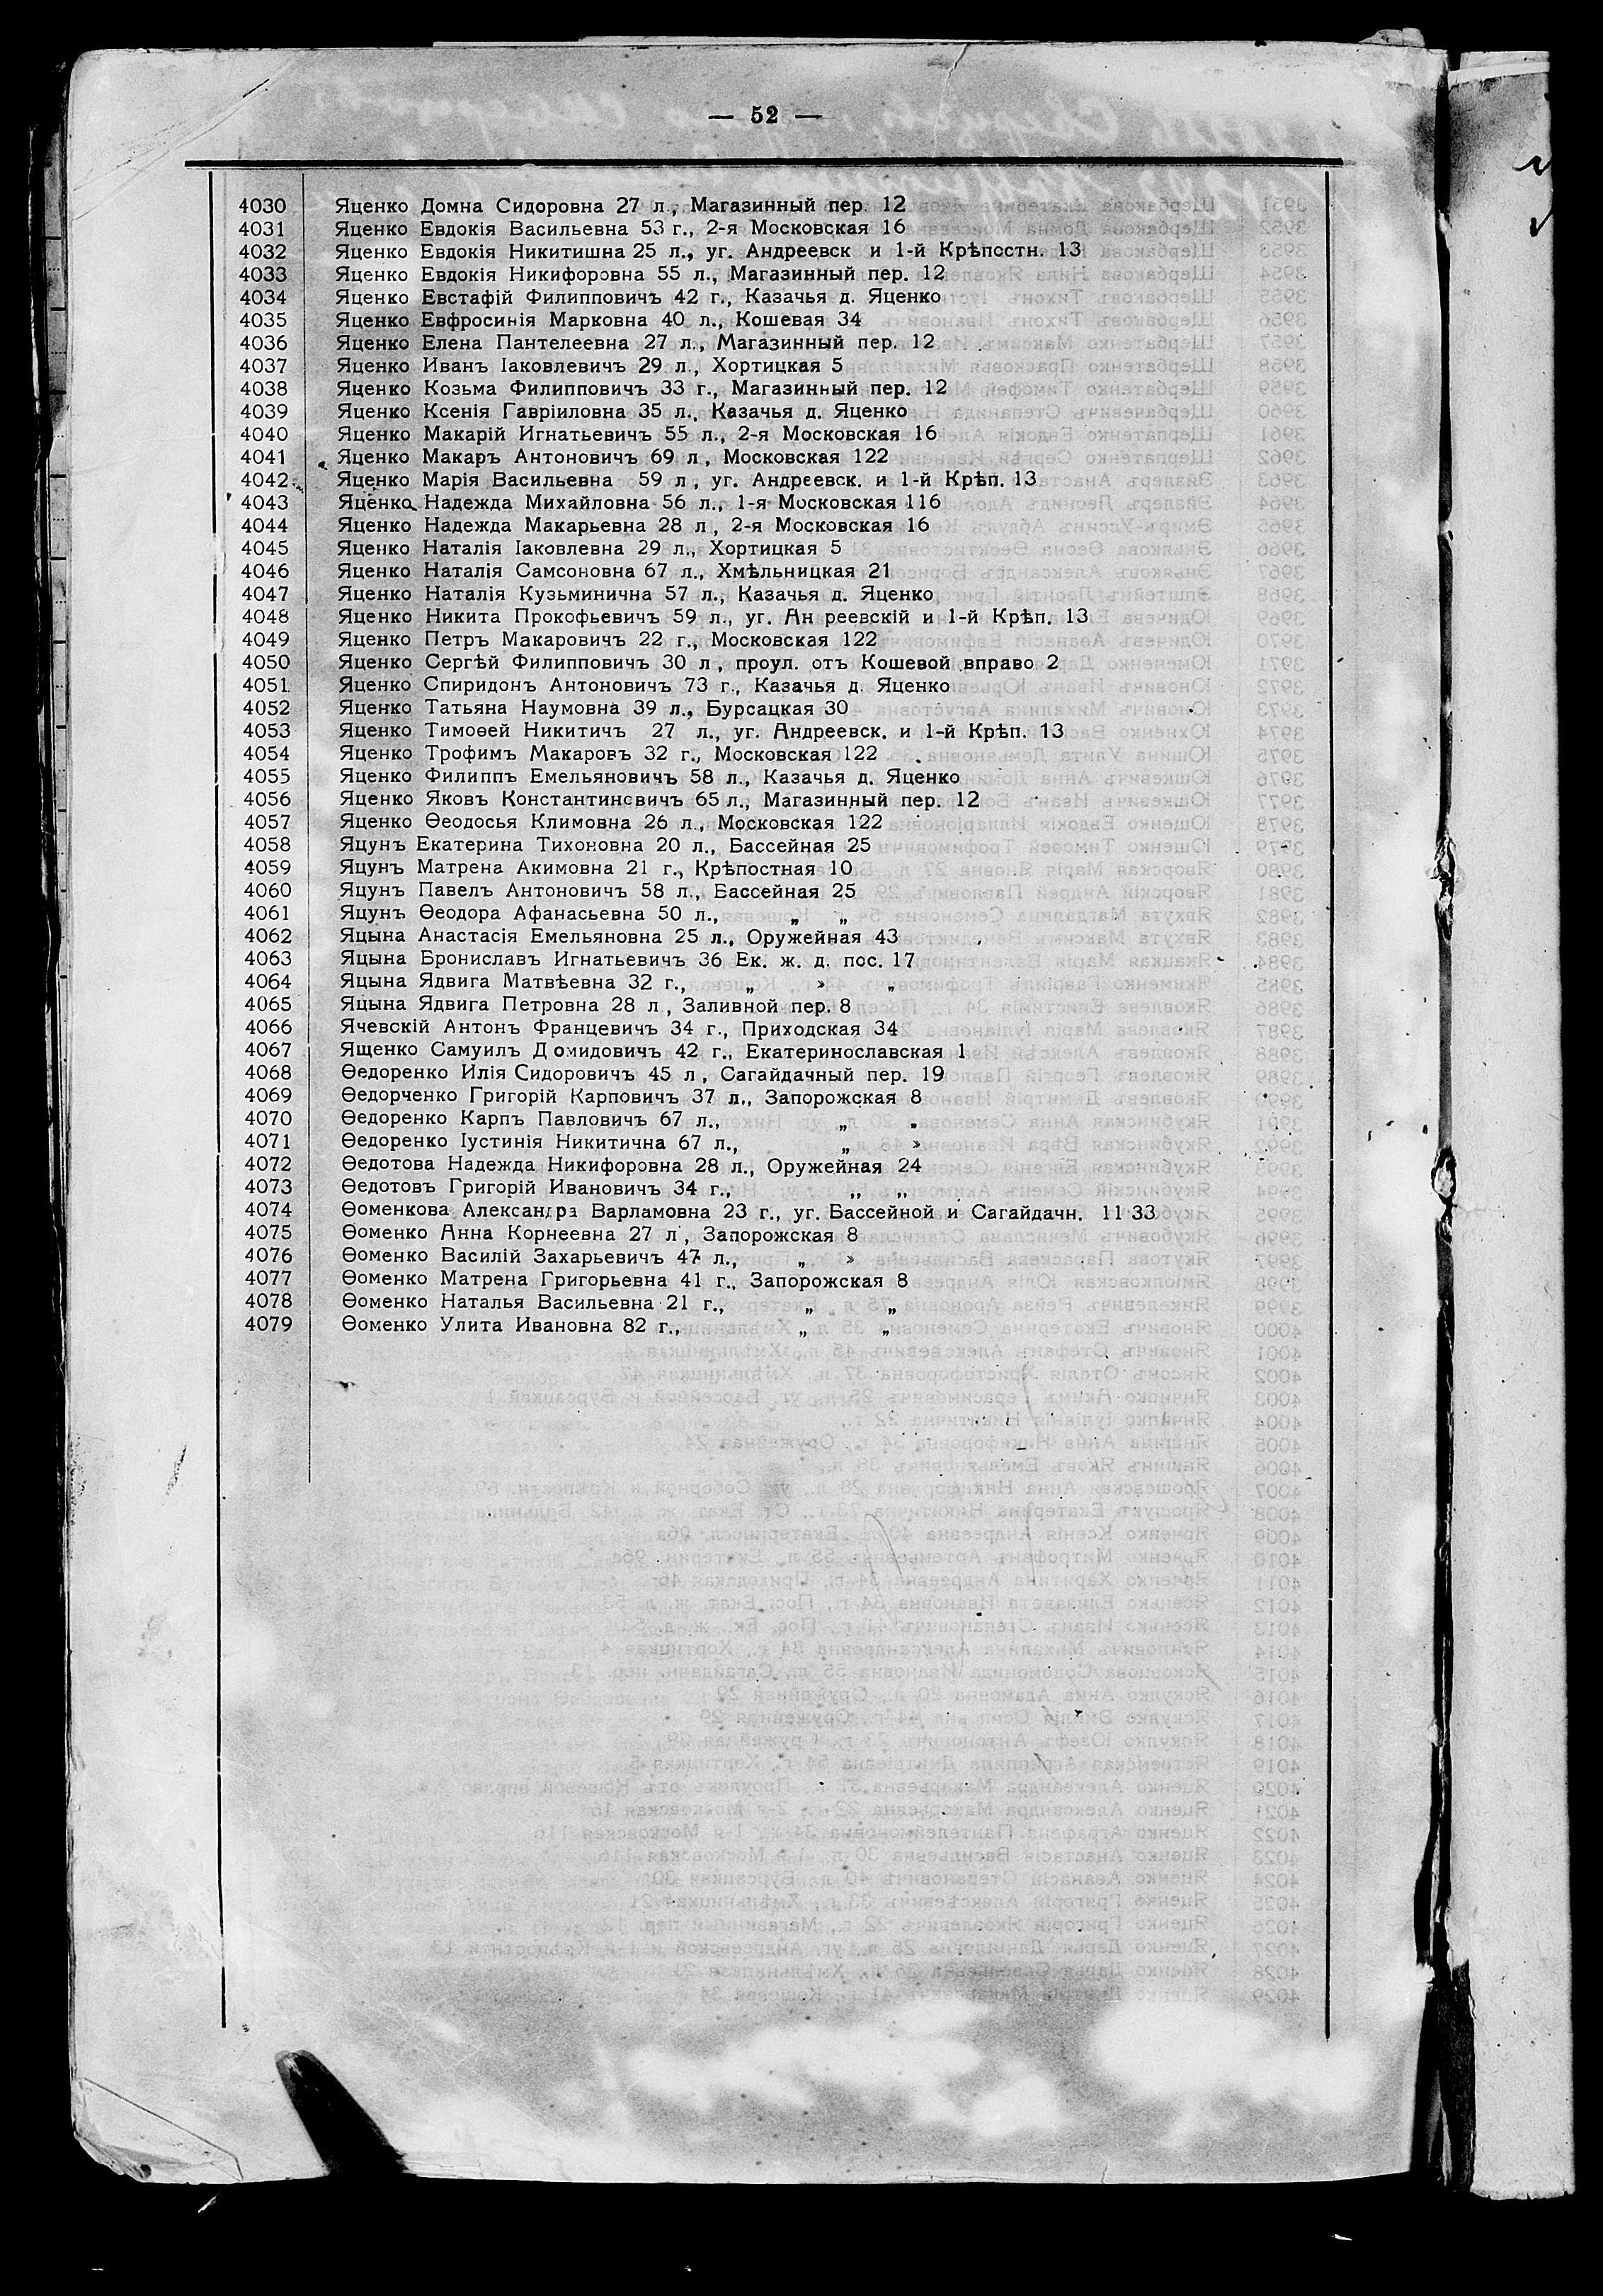 — 52 —
4030 Яценко Домна Сидоровна 27 л., Магазинный пер. 12
4031 Яценко Евдокія Васильевна 53 г., 2-я Московская 16
4032 Яценко Евдокія Никитишна 25 л., уг. Андреевск и 1-й Крѣпсстн. 13
4033 Яценко Евдокія Никифоровна 55 л., Магазинный пер. 12
4034 Яценко Евстафій Филипповичъ 42 г., Казачья д. Яценко
4035 Яценко Евфросинія Марковна 40 л., Кошевая 34
4036 Яценко Елена Пантелеевна 27 л., Магазинный пер. 12
4037 Яценко Иванъ Іаковлевичъ 29 л., Хортицкая 5
4038 Яценко Козьма Филипповичъ 33 г., Магазинный пер. 12
4039 Яценко Ксенія Гавріиловна 35 л., Казачья д. Яценко
4040 Яценко Макарій Игнатьевичъ 55 л., 2-я Московская 16
4041 Яценко Макаръ Антоновичъ 69 л, Московская 122
4042 Яценко Марія Васильевна 59 л, уг. Андреевск. и 1-й Крѣп. 13
4043 Яценко Надежда Михайловна 56 л., 1-я Московская 116
4044 Яценко Надежда Макарьевна 28 л, 2-я Московская 16
4045 Яценко Наталія Іаковлевна 29 л., Хортицкая 5
4046 Яценко Наталія Самсоновна 67 л., Хмѣльницкая 21
4047 Яценко Наталія Кузьминична 57 л., Казачья д. Яценко
4048 Яценко Никита Прокофьевичъ 59 л., уг. Ан реевскій и 1-й Крѣп. 13
4049 Яценко Петръ Макаровичъ 22 г., Московская 122
4050 Яценко Сергѣй Филипповичъ 30 л, проул. отъ Кошевой вправо 2
4051 Яценко Спиридонъ Антоновичъ 73 г., Казачья д. Яценко
4052 Яценко Татьяна Наумовна 39 л., Бурсацкая 30
4053 Яценко Тимоѳей Никитичъ 27 л., уг. Андреевск. и 1-й Крѣп. 13
4054 Яценко Трофимъ Макаровъ 32 г., Московская 122
4055 Яценко Филиппъ Емельяновичъ 58 л., Казачья д. Яценко
4056 Яценко Яковъ Константинсвичъ 65 л., Магазинный пер. 12
4057 Яценко Ѳеодосья Климовна 26 л., Московская 122
4058 Яцунъ Екатерина Тихоновна 20 л., Бассейная 25
4059 Яцунъ Матрена Акимовна 21 г., Крѣпостная 10
4060 Яцунъ Павелъ Антоновичъ 58 л., Бассейная 25
4061 Яцунъ Ѳеодора Афанасьевна 50 л., „ „
4062 Яцына Анастасія Емельяновна 25 л., Оружейная 43
4063 Яцына Брониславъ Игнатьевичъ 36 Ек. ж. д. пос. 17
4064 Яцына Ядвига Матвѣевна 32 г., „ » „
4065 Яцына Ядвига Петровна 28 л, Заливной пер. 8
4066 Ячевскій Антонъ Францевичъ 34 г., Приходская 34
4067 Ященко Самуилъ Домидовичъ 42 г., Екатеринославская 1
4068 Ѳедоренко Илія Сидоровичъ 45 л, Сагайдачный пер. 19
4069 Ѳедорченко Григорій Карповичъ 37 л., Запорожская 8
4070 Ѳедоренко Карпъ Павловичъ 67 л., „ „
4071 Ѳедоренко Іустинія Никитична 67 л., „ »
4072 Ѳедотова Надежда Никифоровна 28 л., Оружейная 24
4073 Ѳедотовъ Григорій Ивановичъ 34 г., „ „
4074 Ѳоменкова Александра Варламовна 23 г., уг. Бассейной и Сагайдачн. 11 33
4075 Ѳоменко Анна Корнеевна 27 л, Запорожская 8
4076 Ѳоменко Василій Захарьевичъ 47 л., „ »
4077 Ѳоменко Матрена Григорьевна 41 г., Запорожская 8
4078 Ѳоменко Наталья Васильевна 21 г., „ „
4079 Ѳоменко Улита Ивановна 82 г., „ „